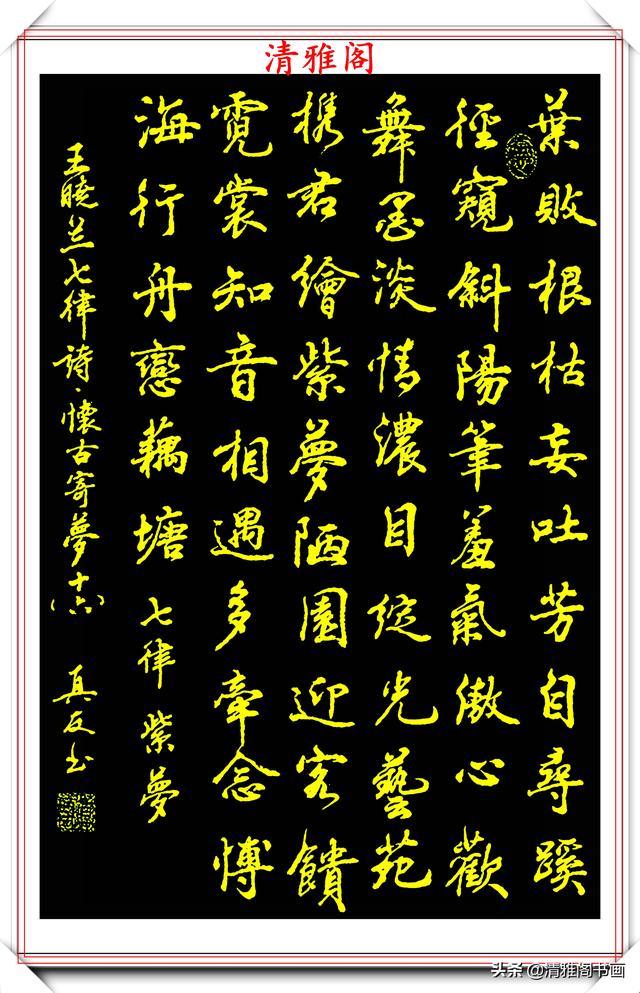 清雅阁
葉敗根枯妄吐芳自尋蹊
徑窺斜陽筆羞氣傲心歡
舞墨淡情濃目綻光藝苑
携君繪紫夢陋園迎客饋
霓裳知音相遇多牽念愽
海行舟戀藕塘 七律 紫夢
王曉兰七律詩·懷古寄夢十(六) 真友书
头条 @清雅阁书画